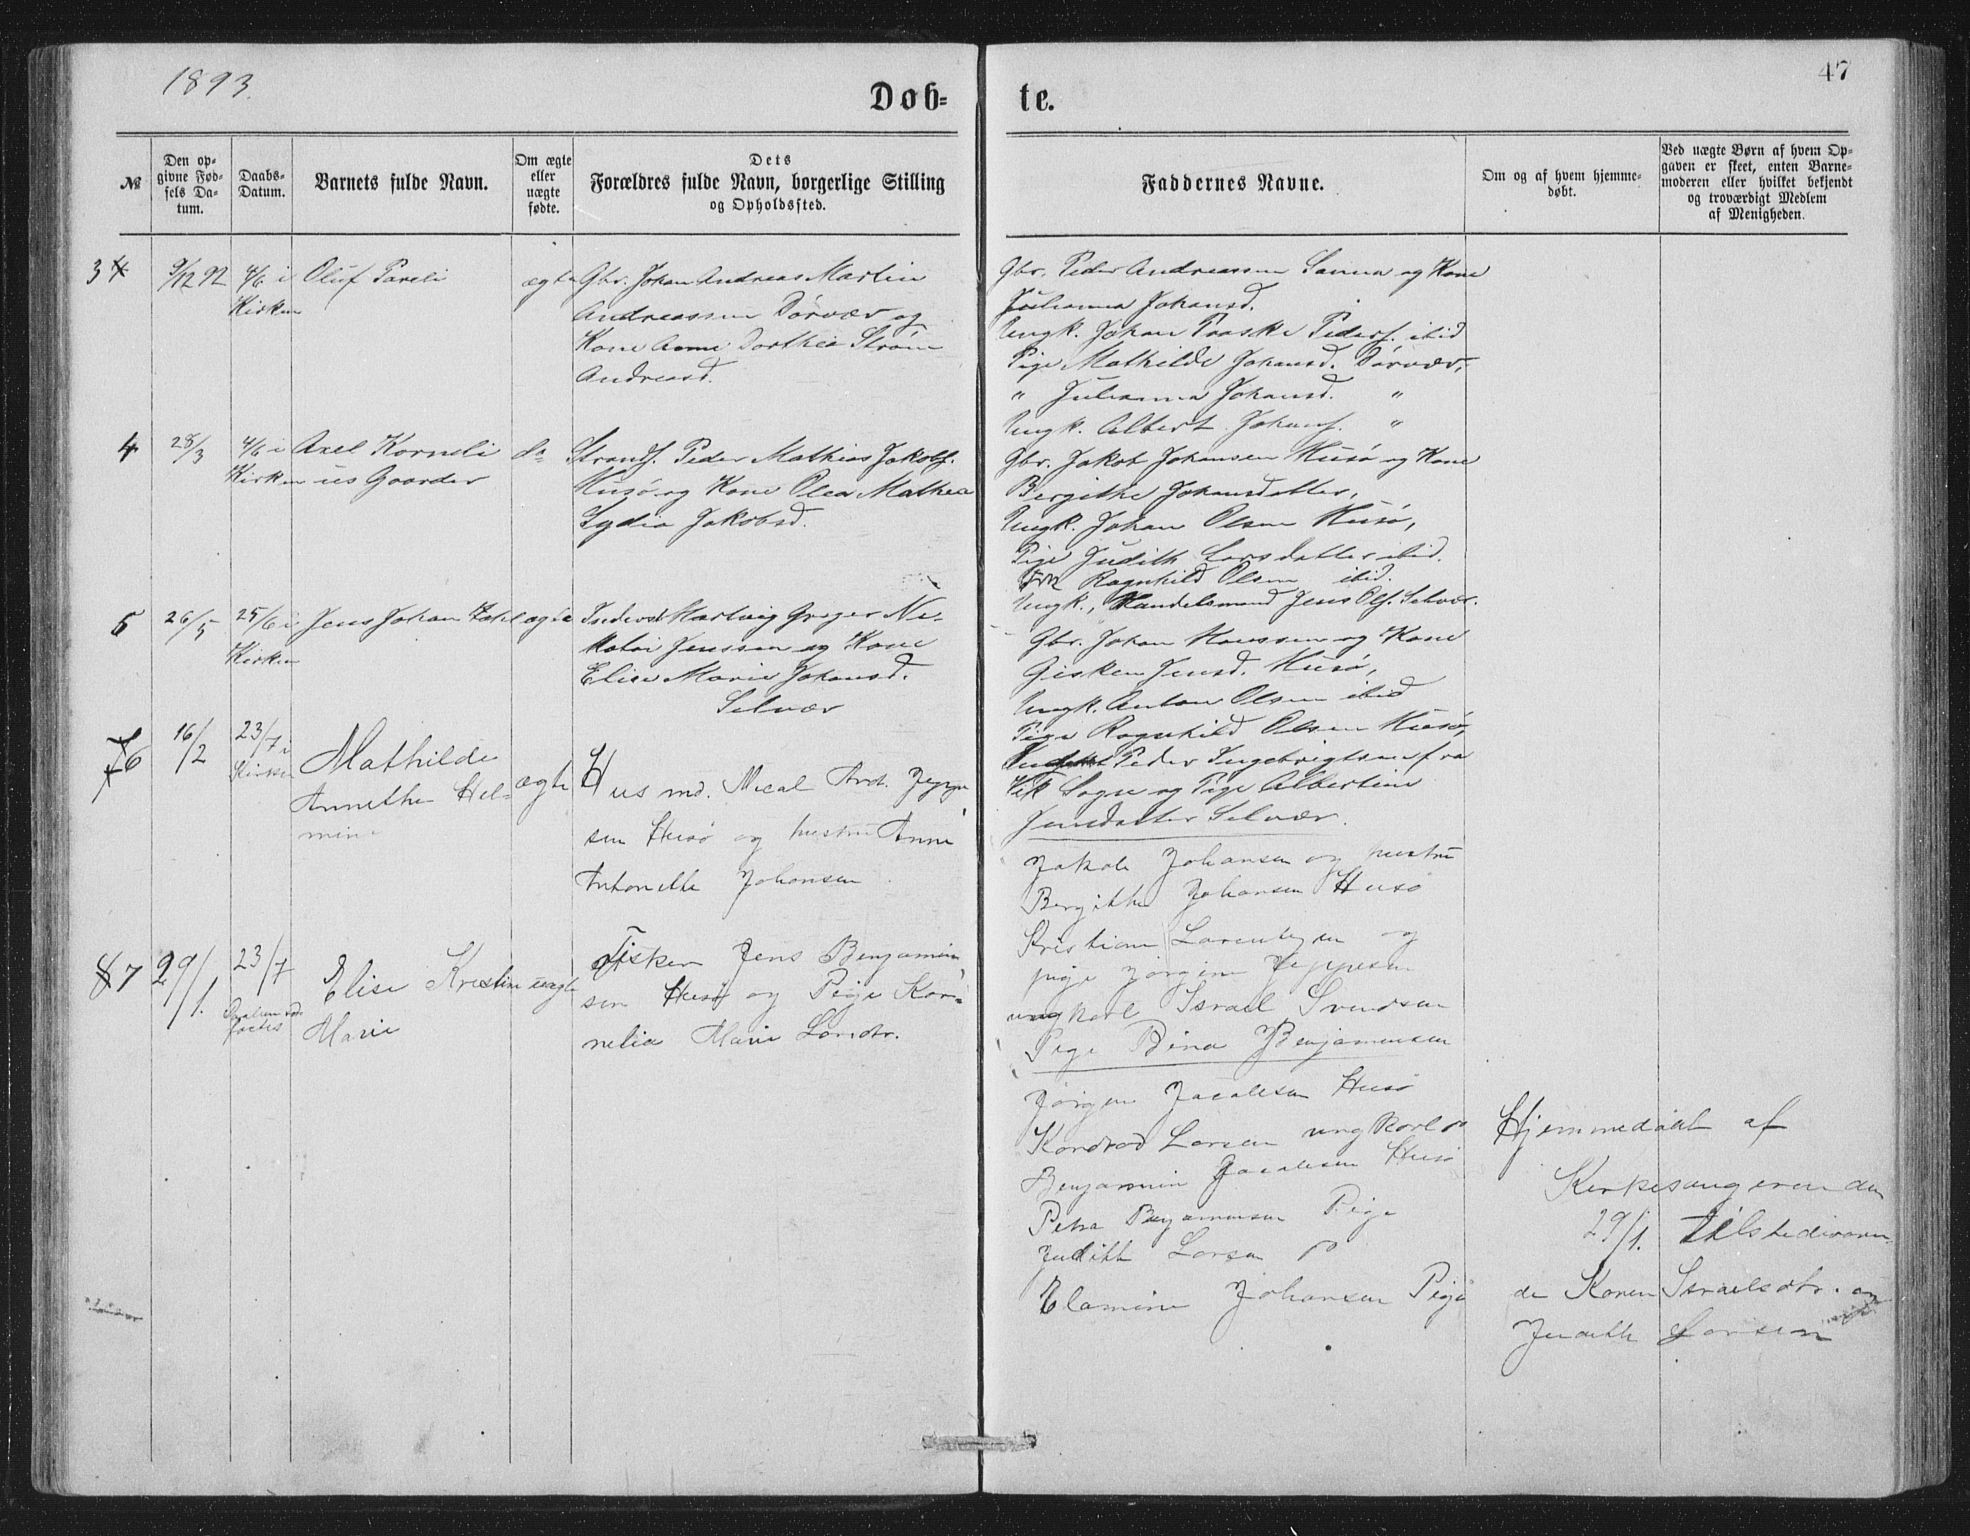 1893.
47
Døb-
te.
№
Den op-
givne Fød-
sels Da-
tum.
Daabs-
Datum.
Barnets fulde Navn.
Om ægte
eller
uægte
fødte.
Dets
Forældres fulde Navn, borgerlige Stilling
og Opholdssted.
Faddernes Navne.
Om og af hvem hjemme-
døbt.
Ved uægte Børn af hvem Op-
gaven er skeet, enten Barne-
moderen eller hvilket bekjendt
og troværdigt Medlem
af Menigheden.
3
9/12 92
4/6 i
Kirken
Oluf Pareli
ægte
Gbr. Johan Andreas Martin
Andreassen Dørvær og
Kone Anne Dorthea Strøm
Andreasd.
Gbr. Peder Andreassen Sanna og Kone
Julianna Johansd.
Ungk. Johan Paaske Peders. ibid
Pige Mathilde Johansd. Dørvær,
" Julianna Johansd. "
Ungk. Albert Johans. "
4
28/3
4/6 i
Kirken
Axel Korneli
us Gaarder
do
Strands. Peder Mathias Jakobs.
Husø og Kone Olea Mathea
Lydia Jakobsd.
Gbr. Jakob Johansen Husø og Kone
Bergithe Johansdatter,
Ungk. Johan Olsen Husø,
Pige Judith Larsdatter ibid.
Ragnhild Olsen ibid.
Ungk., Handelsmand Jens Ols. Selvær.
5
26/5
25/6 i
Kirken
Jens Johan Zahl
ægte
Inderst Hartvig Greger Ni-
kolai Jenssen og Kone
Elise Marie Johansd.
Selvær
Gbr. Johan Hanssen og Kone
Gisken Jensd. Husø,
Ungk. Anton Olsen ibid
Pige Ragnhild Olsen Husø,
Peder Ingebrigtsen fra
Vik Sogn og Pige Albertine
Jensdatter Selvær.
6
16/2
23/7 i
Kirken
Mathilde
Annethe Hel-
mine
ægte
Husmd. Mical Arnt. Jeppe
sen Husø og hustru Anne
Antonette Johansen
Jakob Johansen og hustru
Bergitte Johansen Husø
Kristian Lorentzen og
pige Jørgine Jeppesen
ungkarl Israel Svendsen
Pige Bina Benjamensen
7
29/1.
23/7
Elise Kristine
Marie
uægte
Fisker Jens Benjamin
sen Husø og Pige Kor-
nelia Marie Larsdtr.
Jørgen Jacobsen Husø
Kondrad Larsen ungkarl
Benjamin Jacobsen Husø
Petra Benjamensen Pige
Judith Larsen
Elamine Johansen Pige
Hjemmedøbt af
Kirkesangeren den
29/1. Tilstedeværen
de Karen Israelsdtr. og
Judith Larsen